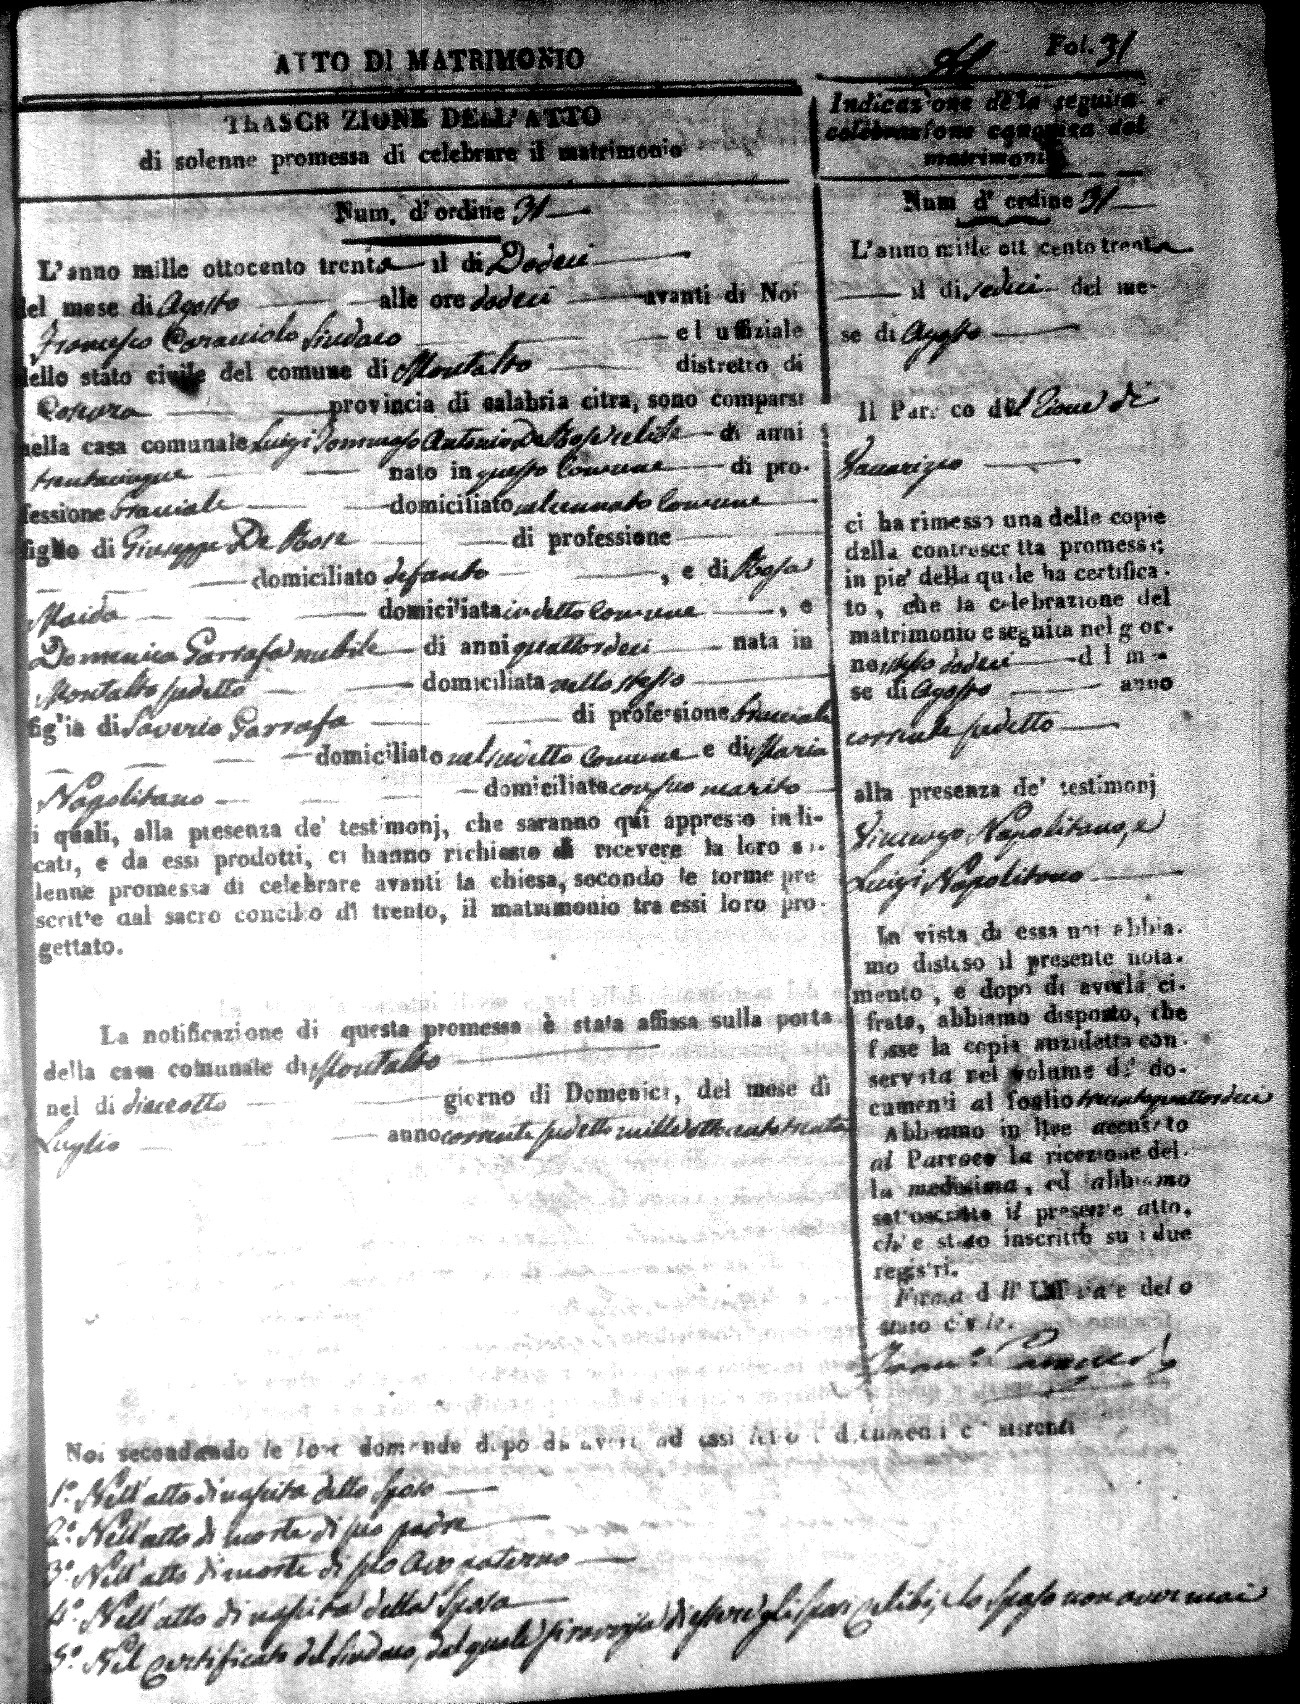 Fol. 31
ATTO DI MATRIMONIO
TRASCRIZIONE DELL'ATTO
di solenne promessa di celebrare il matrimonio
Num. d'ordine 31
L'anno mille ottocento trenta il di Dodeci
del mese di Agosto alle ore dodeci avanti di Noi
Francesco Caracciolo Sindaco ed uffiziale
dello stato civile del comune di Montalto distretto di
Cosenza provincia di calabria citra, sono comparsi
nella casa comunale Luigi Tommaso Antonio De Rose celibe di anni
trentacinque nato in questo Comune di pro-
fessione bracciale domiciliato nel cennato Comune
figlio di Giuseppe De Rose di professione
domiciliato defunto , e di Rosa
Maida domiciliata in detto Comune , e
Domenica Garrafa nubile di anni quattordeci nata in
Montalto sudetto domiciliata nello stesso
figlia di Saverio Garrafa di professione bracciale
domiciliato nel sudetto Comune e di Maria
Napolitano domiciliata con suo marito
i quali, alla presenza de' testimonj, che saranno qui appresso indi-
cati, e da essi prodotti, ci hanno richiesto di ricevere la loro so-
lenne promessa di celebrare avanti la chiesa, secondo le forme pre
scritte dal sacro concilio di trento, il matrimonio tra essi loro pro-
gettato.
La notificazione di questa promessa è stata affissa sulla porta
della casa comunale di Montalto
nel di dieceotto giorno di Domenica, del mese di
Luglio anno corrente sudetto mille ottocento trenta
Noi secondando le loro domande dopo di avere ad essi letto i documenti consistenti
1.° Nell'atto di nascita dello Sposo
2.° Nell'atto di morte di suo padre
3.° Nell'atto di morte di suo avo paterno
4.° Nell'atto di nascita della Sposa
5.° Nel certificato del Sindaco, dal quale si rovvisa di essere gli sposi celibi, e lo Sposo non aver mai
Indicazione della seguita
celebrazione canonica del
matrimonio
Num d'ordine 31
L'anno mille ottocento trenta
il di sedici del me-
se di Agosto
Il Parroco del Rione di
Vaccarizzo
ci ha rimesso una delle copie
della controscritta promessa;
in piè della quale ha certifica-
to, che la celebrazione del
matrimonio è seguita nel gior-
no stesso dodeci del me-
se di Agosto anno
corrente sudetto
alla presenza de' testimonj
Vincenzo Napolitano, e
Luigi Napolitano
In vista di essa noi abbia-
mo disteso il presente nota-
mento, e dopo di averla ci-
frata, abbiamo disposto, che
fosse la copia anzidetta con-
servata nel volume de' do-
cumenti al foglio trentaquattordeci
Abbiamo in oltre accusato
al Parroco la ricezione del-
la medesima, ed abbiamo
sottoscritto il presente atto,
ch'è stato inscritto su i due
registri.
Firma dell'Uffiziale dello
stato civile.